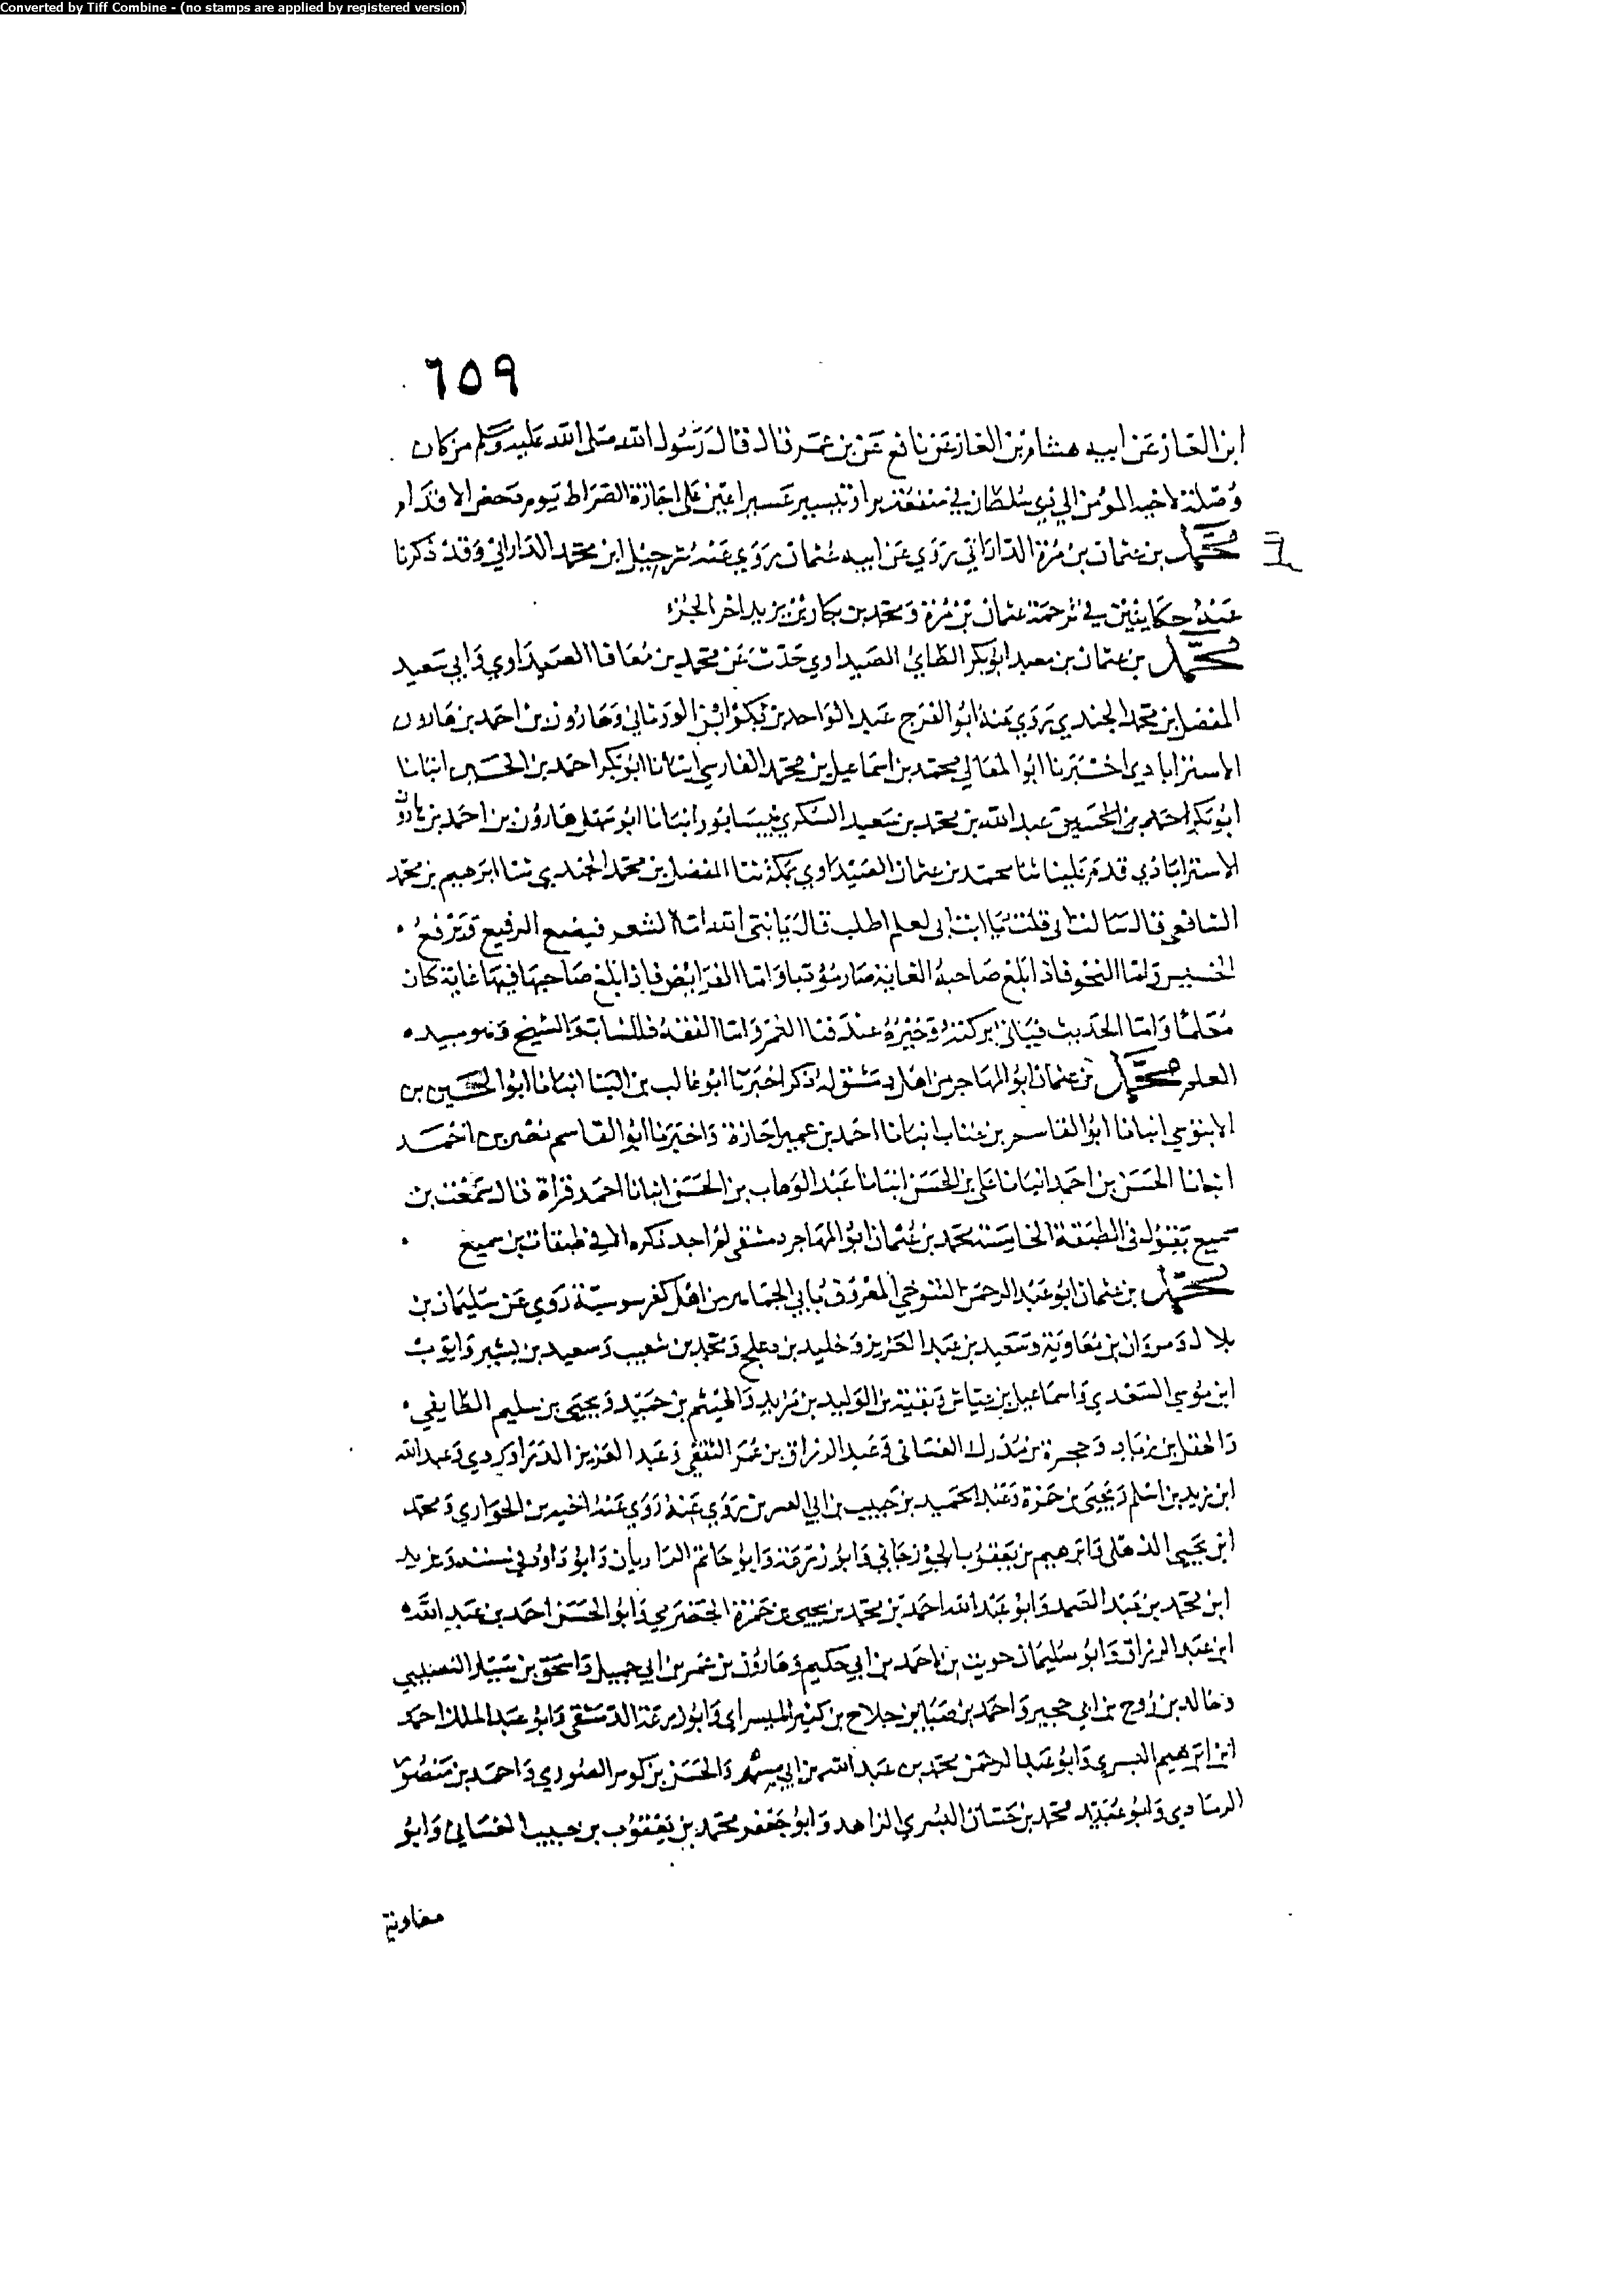 Converted by Tiff Combine - (no stamps are applied by registered version)
٦٥٩
ابن الغاز عن ابيه هشام بن الغاز عن نافع عن بن عمر قال قال رسول الله صلى الله عليه وسلم من كان
وصلة لاخيه المؤمن الي ذي سلطان في منفعة بر او تيسير عسير اعين على اجازة الصراط يوم دحض الاقدام
محمد بن عثمان بن مرة الداراني روي عن ابيه عثمان روي عنه شرحبيل ابن محمد الداراني وقد ذكرنا
عنه حكايتين في ترجمة عثمان بن مرة ومحمد بن بكار بن يزيد اخر الجزء
محمد بن عثمان بن معبد ابو بكر الطائي الصيداوي حدث عن محمد بن معافا الصيداوي وابي سعيد
المفضل بن محمد الجندي روي عنه ابو الفرج عبد الواحد بن بكر الورثاني وهارون بن احمد بن هارون
الاستراباذي اخبرنا ابو المعالي محمد بن اسماعيل بن محمد الفارسي انبانا ابو بكر احمد بن الحسين انبانا
ابو بكر احمد بن الحسين عبد الله بن محمد بن سعيد السكري بنيسابور انبانا ابو سهل هارون بن احمد بن هارون
الاستراباذي قدم علينا ثنا محمد بن عثمان الصيداوي بمكة ثنا المفضل بن محمد الجندي ثنا ابرهيم بن محمد
الشافعي قال سالت ابي قلت يا ابت اي العلم اطلب قال يا بني اما الشعر فيضع الرفيع ويرفع
الخسيس واما النحو فاذا بلغ صاحبه الغاية صار مؤدبا واما الفرايض فاذا بلغ صاحبها فيها غاية كان
معلما واما الحديث فتاتي بركته وخيره عند فنا العمر واما الفقه فللشاب والشيخ وهو سيد
العلم محمد بن عثمان ابو المهاجر من اهل دمشق له ذكر اخبرنا ابو غالب بن البنا انبانا ابو الحسين بن
الابنوسي انبانا ابو القاسم بن عتاب انبانا احمد بن عمير اجازة واخبرنا ابو القاسم نصر بن احمد
انبانا الحسن بن احمد انبانا علي بن الحسن انبانا عبد الوهاب بن الحسن انبانا احمد قراة قال سمعت بن
سميع يقول في الطبقة الخامسة محمد بن عثمان ابو المهاجر دمشقي لم اجد ذكره الا في طبقات بن سميع
محمد بن عثمان ابو عبد الرحمن التنوخي المعروف بابي الجماهر من اهل كفرسوسية روي عن سليمان بن
بلال ومروان بن معاوية وسعيد بن عبد العزيز وخليد بن دعلج ومحمد بن شعيب وسعيد بن بشير وايوب
ابن موسي السعدي واسماعيل بن عياش وبقية بن الوليد بن مزيد والهيثم بن حميد ويحيى بن سليم الطايفي
والهقل بن زياد وحجرة بن مدرك الغساني وعبد الرزاق بن عمر الثقفي وعبد العزيز الدراوردي وعبد الله
ابن زيد بن اسلم ويحيى بن حمزة وعبد الحميد بن حبيب بن ابي العسرين روي عنه روي عنه احمد بن الحواري ومحمد
ابن يحيى الذهلي وابرهيم بن يعقوب الجوزجاني وابو زرعة وابو حاتم الرازيان وابو داود في سننه ويزيد
ابن محمد بن عبد الصمد وابو عبد الله احمد بن محمد بن يحيى بن حمزة الحضرمي وابو الحسن احمد بن عبد الله
ابن عبد الرزاق وابو سليمان حويت بن احمد بن ابي حكيم وهارون بن عمر بن ابي جميل واسحق بن سيار النصيبي
وخالد بن روح بن ابي حجير واحمد بن بن جلاح بن كثير وابو زرعة الدمشقي وابو عبد الملك احمد
ابن ابرهيم البسري وابو عبد الرحمن محمد بن عبد الله بن ابي والحسن بن الصوري واحمد بن منصور
الرمادي وابو عبيد محمد بن حسان البسري الزاهد وابو جعفر محمد بن يعقوب بن حبيب الغساني وابو
معاوية